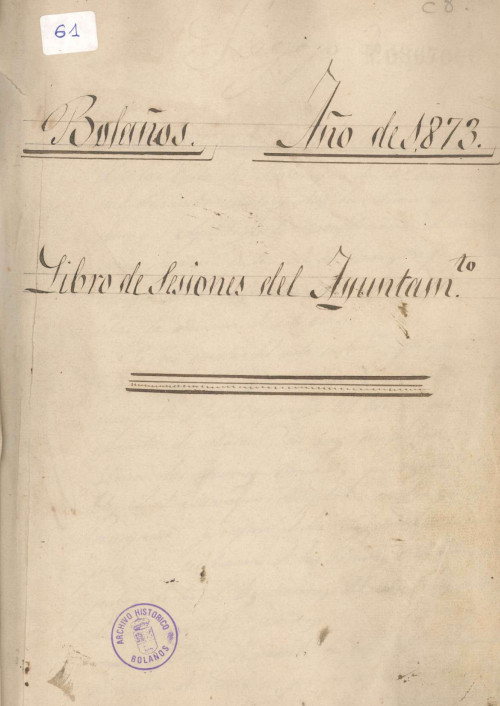 61
C 8.
Bolaños. Año de 1873.
Libro de Sesiones del Ayuntam.to
ARCHIVO HISTORICO
BOLAÑOS